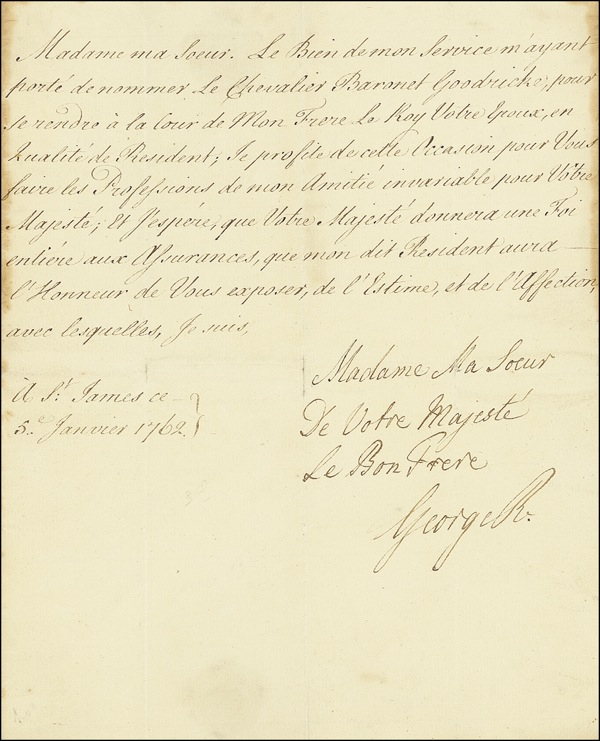 Madame ma Soeur. Le Bien de mon Service m'ayant
porté de nommer Le Chevalier Baronet Goodricke, pour
se rendre à la Cour de Mon Frere Le Roy Votre Epoux, en
Qualité de Resident; Je profite de cette Occasion pour Vous
faire les Professions de mon Amitié invariable pour Vôtre
Majesté; Et J'espére, que Votre Majesté donnera une Foi
entiére aux Assurances, que mon dit Resident aura
l'Honneur de Vous exposer, de l'Estime, et de l'Affection,
avec lesquelles, Je suis,
Madame Ma Soeur
De Votre Majesté
Le Bon Frere
George R.
À St. James ce
5e. Janvier 1762.